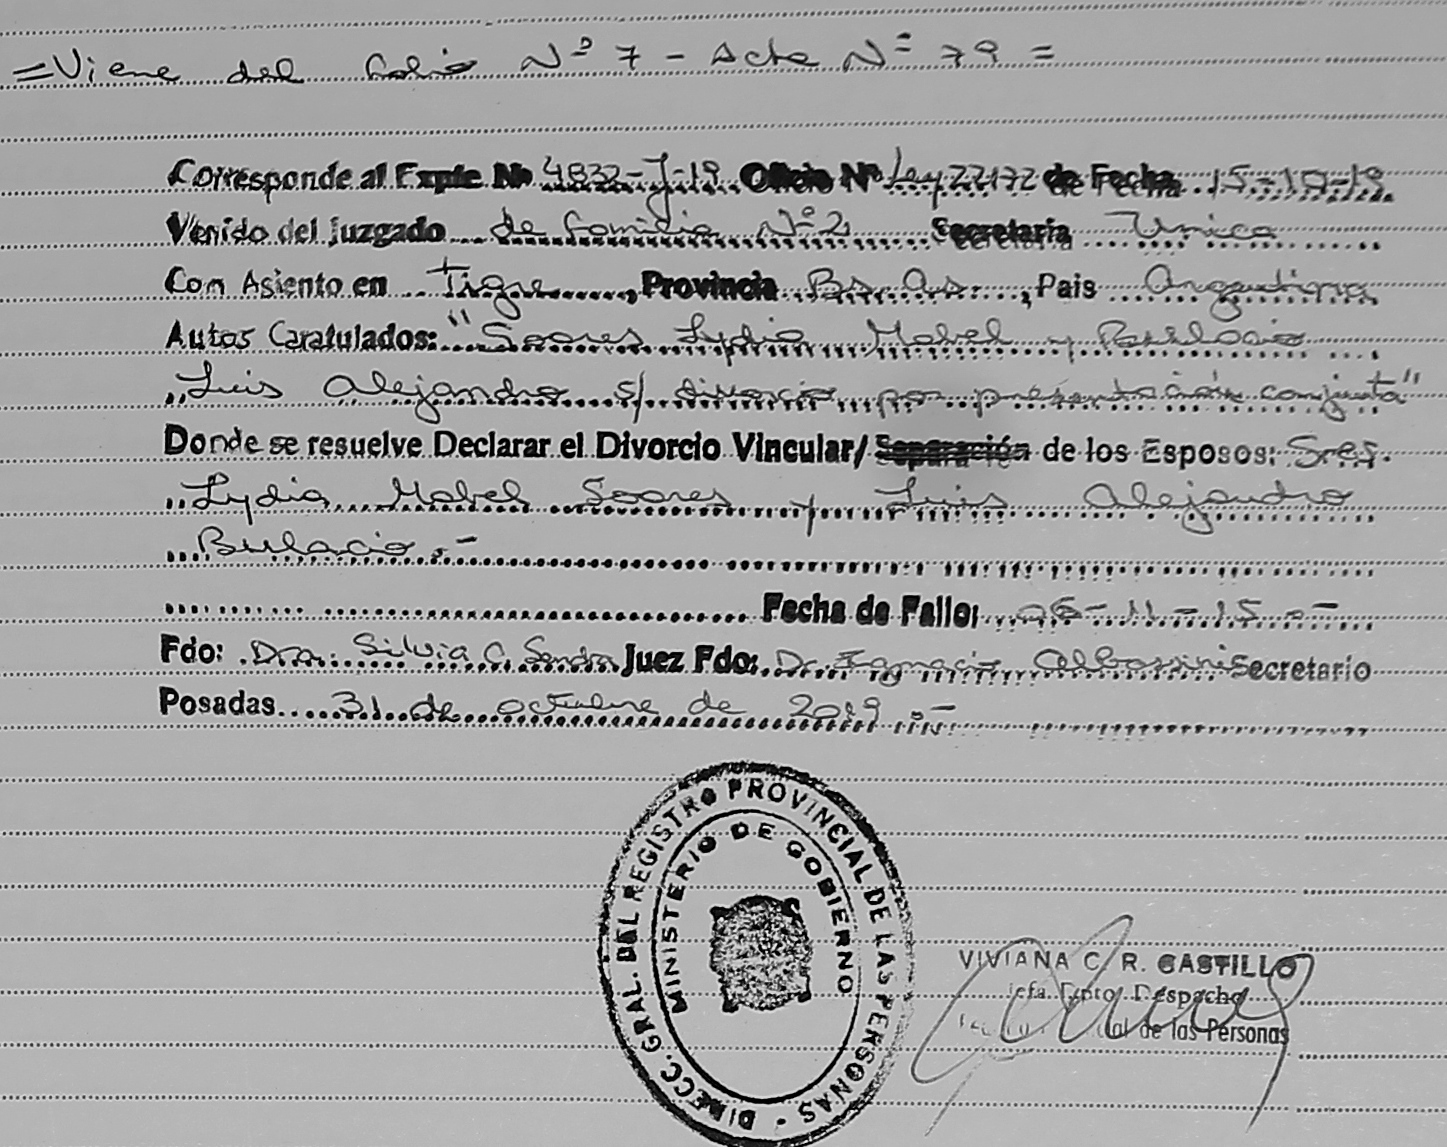 =Viene del folio Nº 7 - Acta Nº 79=
Corresponde al Expte Nº 4832-J-19 Oficio Nº Ley 22172 de Fecha 15-10-19
Venido del Juzgado de Familia Nº 2 Secretaria Unica
Con Asiento en Tigre, Provincia Bs. As., Pais Argentina
Autos Caratulados: "Soares Lydia Mabel y
Luis Alejandro s/ divorcio por presentación conjunta"
Donde se resuelve Declarar el Divorcio Vincular/ Separación de los Esposos: Sres.
Lydia Mabel Soares y Luis Alejandro
Bulacio.-
Fecha de Fallo: 06-11-15.-
Fdo: Dra. Silvia C. Sendra Juez Fdo: Dr. Ignacio Secretario
Posadas 31 de octubre de 2019.-
DIRECC. GRAL. DEL REGISTRO PROVINCIAL DE LAS PERSONAS -
MINISTERIO DE GOBIERNO
VIVIANA C. R. CASTILLO
Jefa Dpto. Despacho
de las Personas